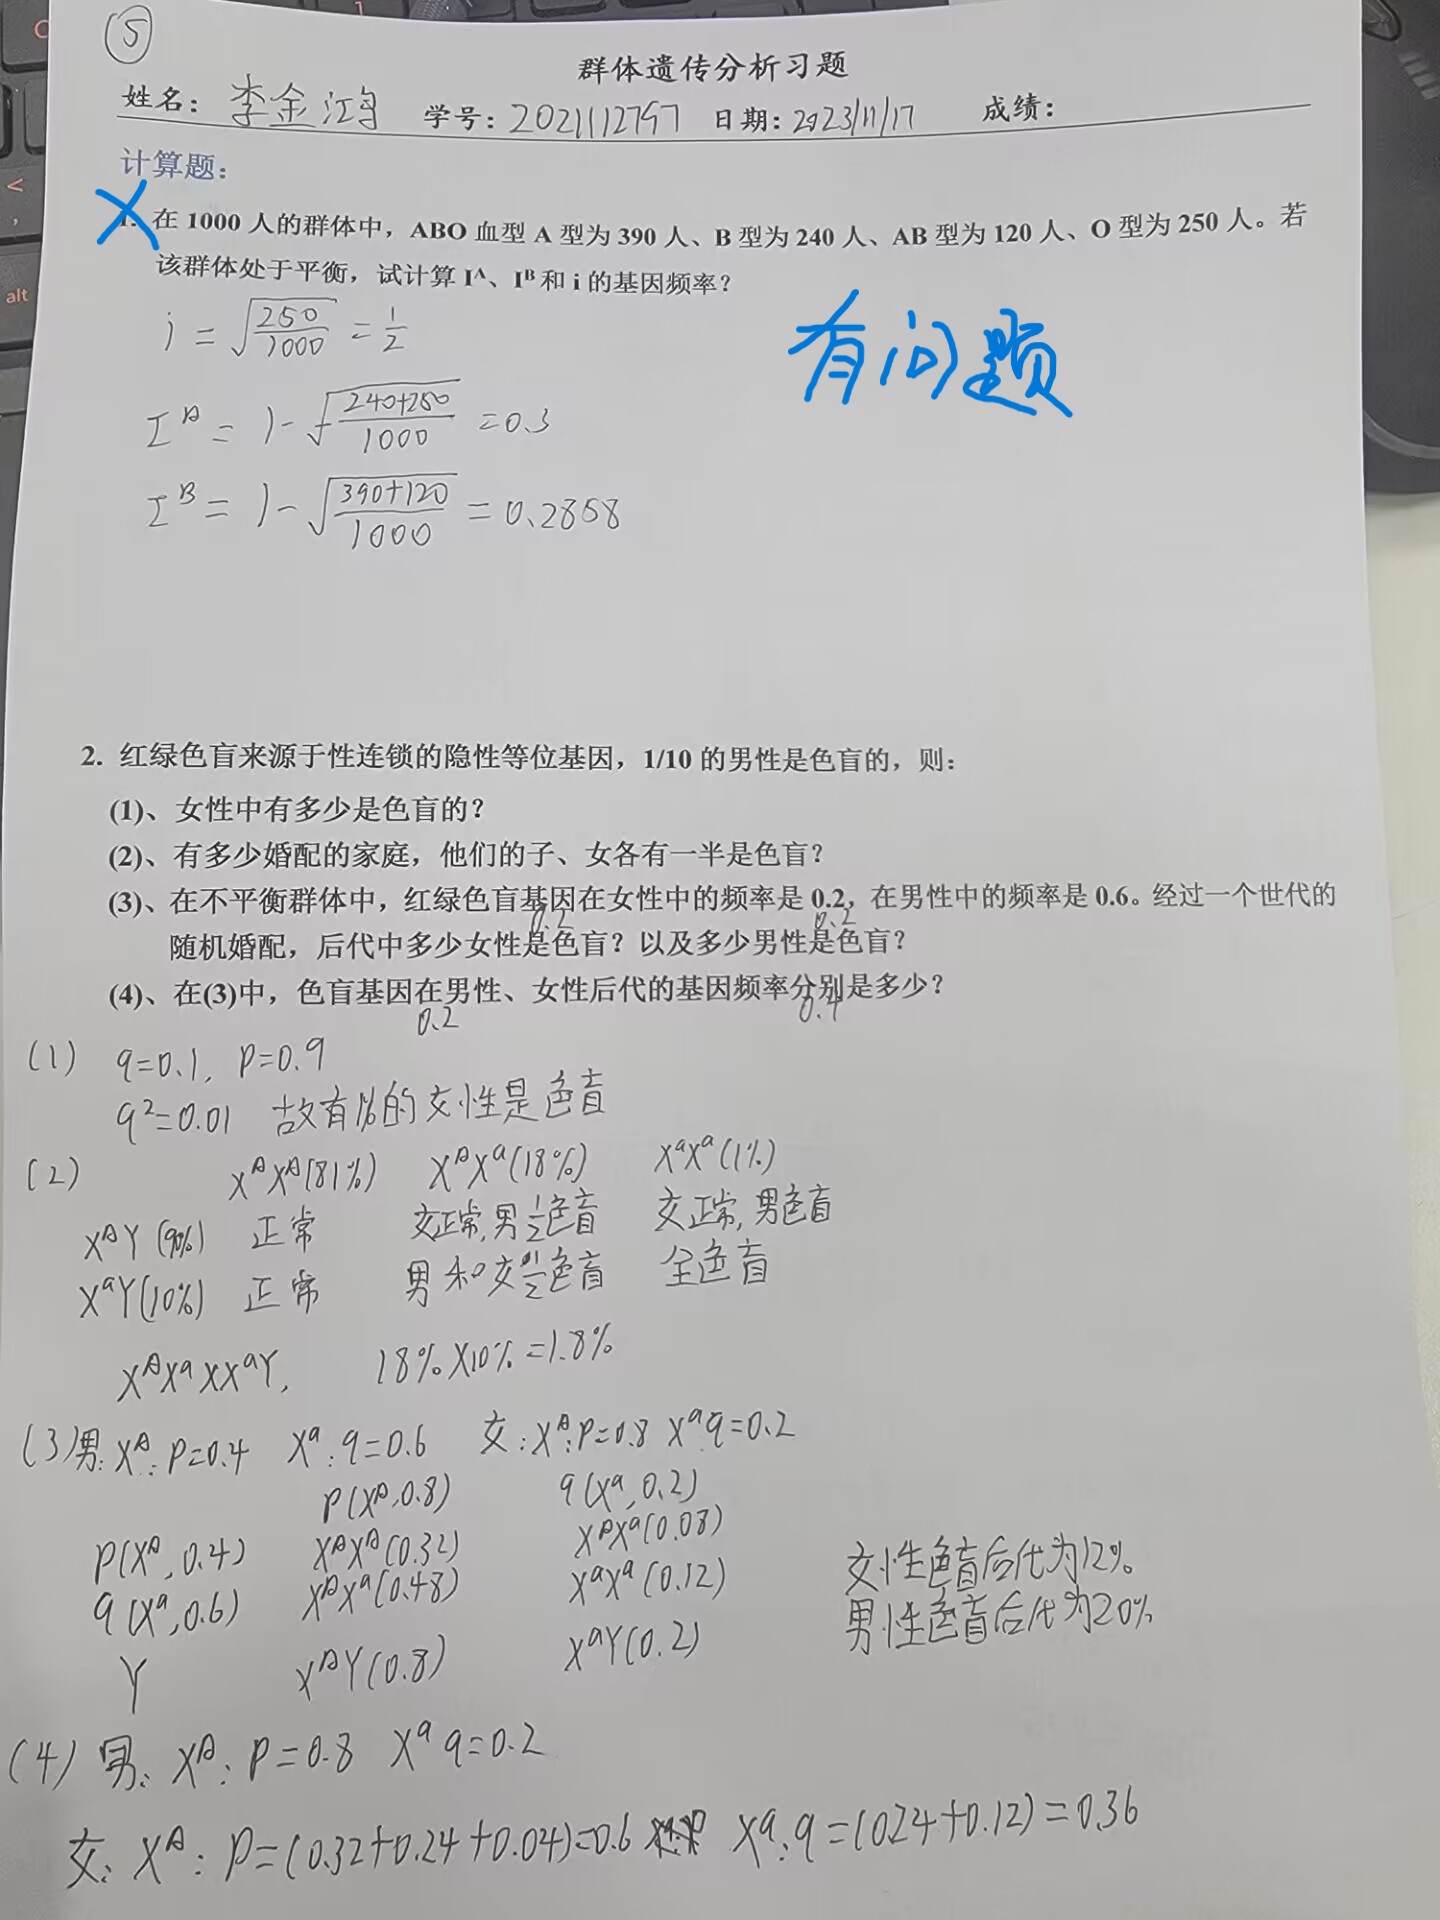 ⑤
群体遗传分析习题
姓名：李金鸿 学号：2021112797 日期：2023/11/17 成绩：
计算题：
X
1. 在 1000 人的群体中，ABO 血型 A 型为 390 人、B 型为 240 人、AB 型为 120 人、O 型为 250 人。若
该群体处于平衡，试计算 Iᴬ、Iᴮ 和 i 的基因频率？
有问题
i = √(250/1000) = 1/2
Iᴬ = 1-√((240+250)/1000) = 0.3
Iᴮ = 1-√((390+120)/1000) = 0.2858
2. 红绿色盲来源于性连锁的隐性等位基因，1/10 的男性是色盲的，则：
(1)、女性中有多少是色盲的？
(2)、有多少婚配的家庭，他们的子、女各有一半是色盲？
(3)、在不平衡群体中，红绿色盲基因在女性中的频率是 0.2，在男性中的频率是 0.6。经过一个世代的
0.2 0.2
随机婚配，后代中多少女性是色盲？以及多少男性是色盲？
(4)、在(3)中，色盲基因在男性、女性后代的基因频率分别是多少？
0.2 0.4
(1) q=0.1, p=0.9
q²=0.01 故有1%的女性是色盲
(2) XᴬXᴬ(81%) XᴬXᵃ(18%) XᵃXᵃ(1%)
XᴬY(90%) 正常 女正常,男1/2色盲 女正常,男色盲
XᵃY(10%) 正常 男和女1/2色盲 全色盲
XᴬXᵃ×XᵃY, 18%×10%=1.8%
(3)男: Xᴬ: p=0.4 Xᵃ: q=0.6 女: Xᴬ: p=0.8 Xᵃ q=0.2
p(Xᴬ,0.8) q(Xᵃ,0.2)
p(Xᴬ,0.4) XᴬXᴬ(0.32) XᴬXᵃ(0.08)
q(Xᵃ,0.6) XᴬXᵃ(0.48) XᵃXᵃ(0.12)
Y XᴬY(0.8) XᵃY(0.2)
女性色盲后代为12%
男性色盲后代为20%
(4) 男: Xᴬ: p=0.8 Xᵃ q=0.2
女: Xᴬ: p=(0.32+0.24+0.04)=0.6 Xᵃ: q=(0.24+0.12)=0.36